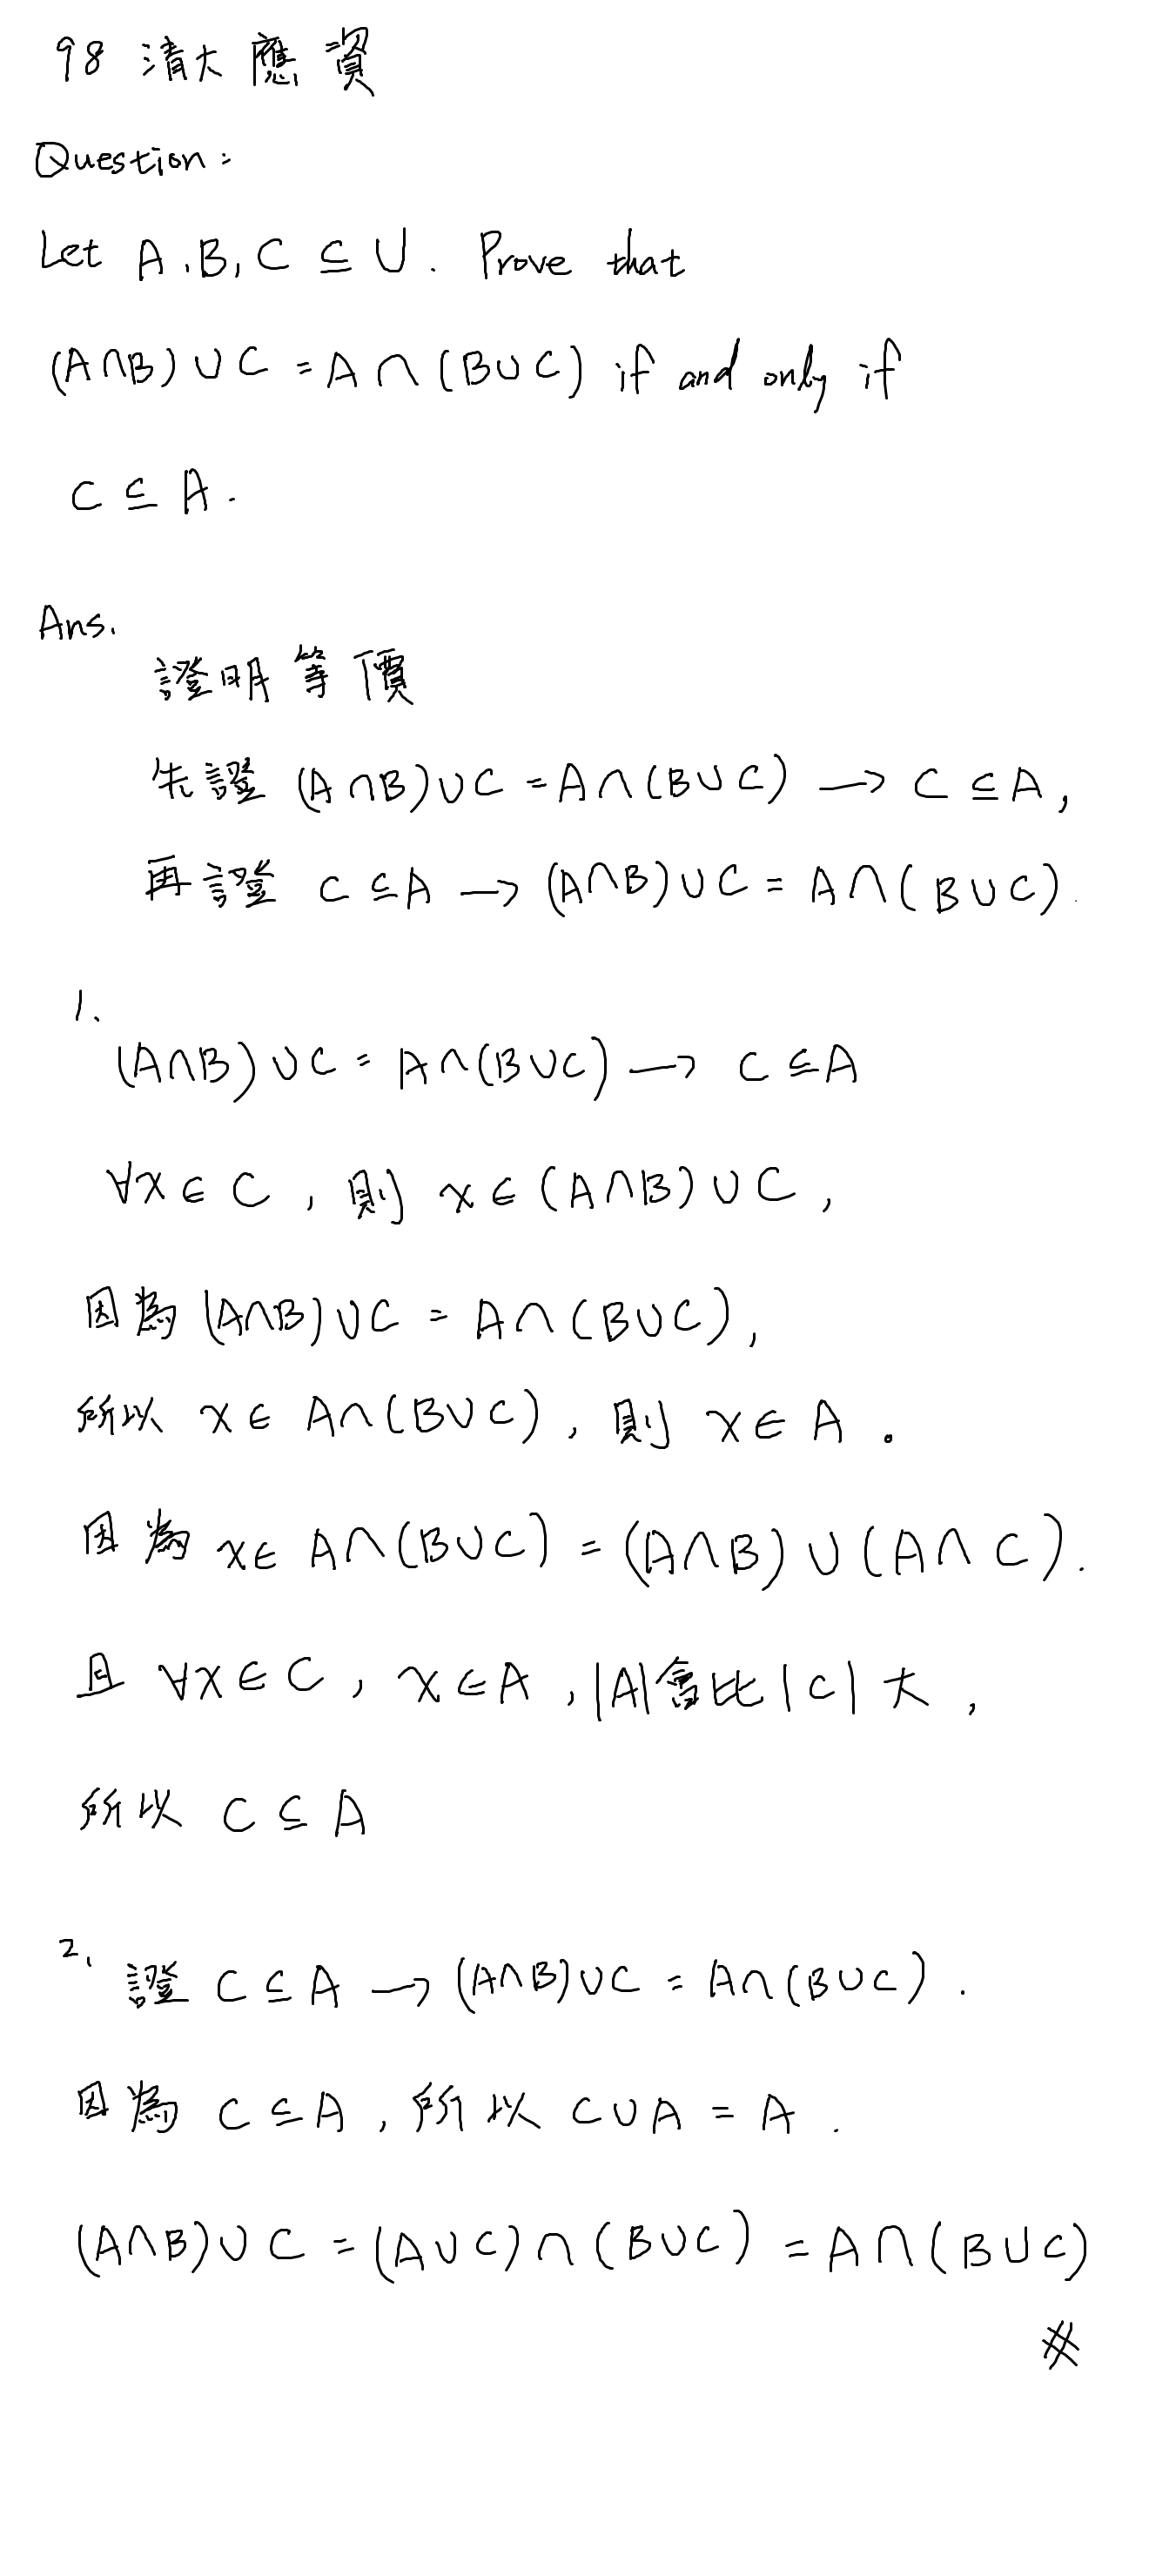 98 清大應資
Question:
Let A,B,C ⊆ U. Prove that
(A∩B)∪C = A∩(B∪C) if and only if
C ⊆ A.
Ans.
證明等價
先證 (A∩B)∪C = A∩(B∪C) → C ⊆ A,
再證 C ⊆ A → (A∩B)∪C = A∩(B∪C).
1.
(A∩B)∪C = A∩(B∪C) → C ⊆ A
∀x∈C, 則 x∈(A∩B)∪C,
因為 (A∩B)∪C = A∩(B∪C),
所以 x∈A∩(B∪C), 則 x∈A.
因為 x∈A∩(B∪C) = (A∩B)∪(A∩C).
且 ∀x∈C, x∈A, |A|會比|C|大,
所以 C ⊆ A
2. 證 C ⊆ A → (A∩B)∪C = A∩(B∪C).
因為 C ⊆ A, 所以 C∪A = A.
(A∩B)∪C = (A∪C)∩(B∪C) = A∩(B∪C)
#